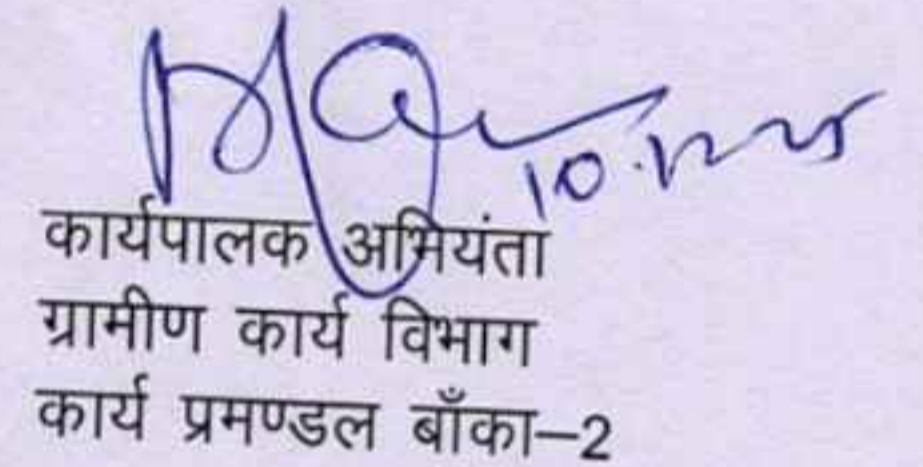 कार्यपालक अभियंता
ग्रामीण कार्य विभाग
कार्य प्रमण्डल बाँका–2